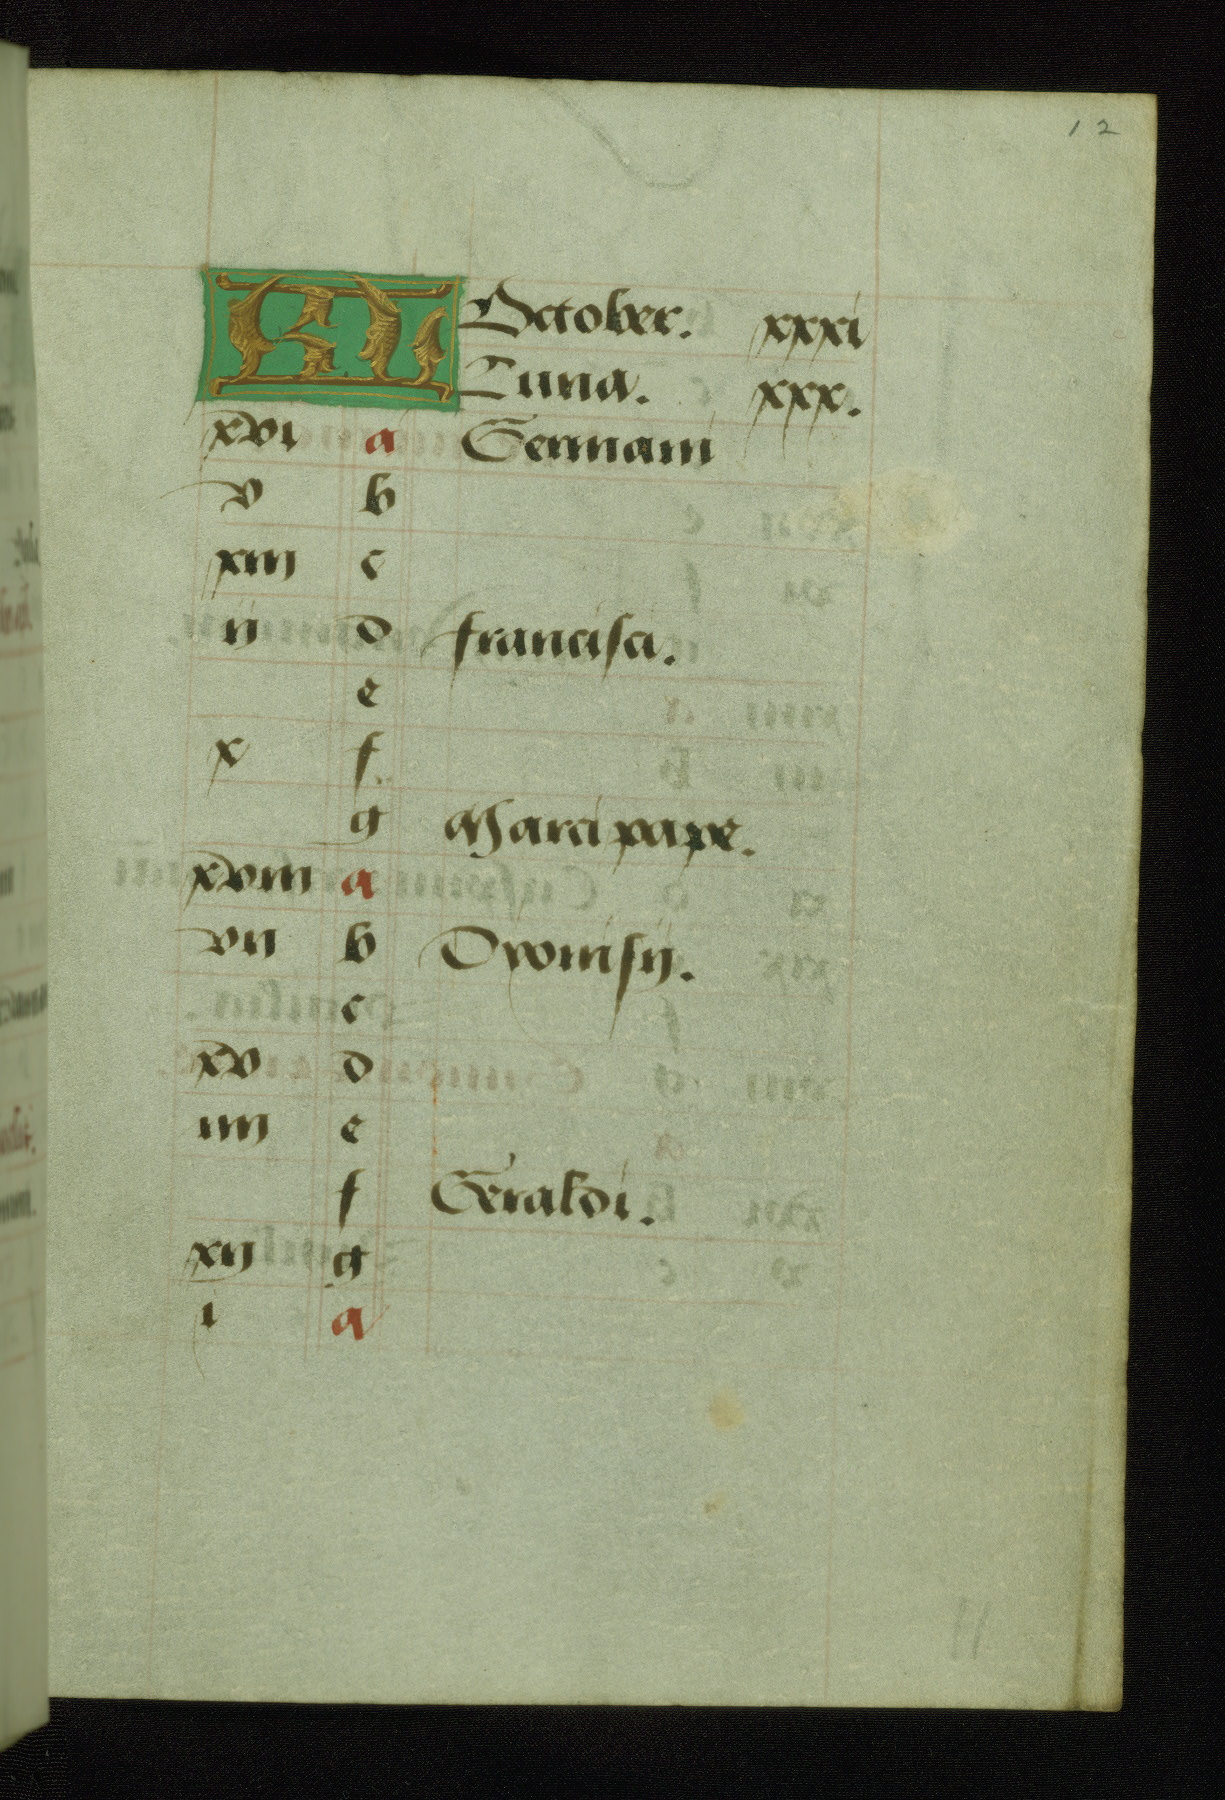 12
KL October. xxxi
Luna. xxx.
xvi a Germani
v b
xiii c
ij d francisci.
e
x f.
g Marci pape.
xviii a
vii b Dyonisij.
c
xv d
iiij e
f Geraldi.
xij g
i a
11